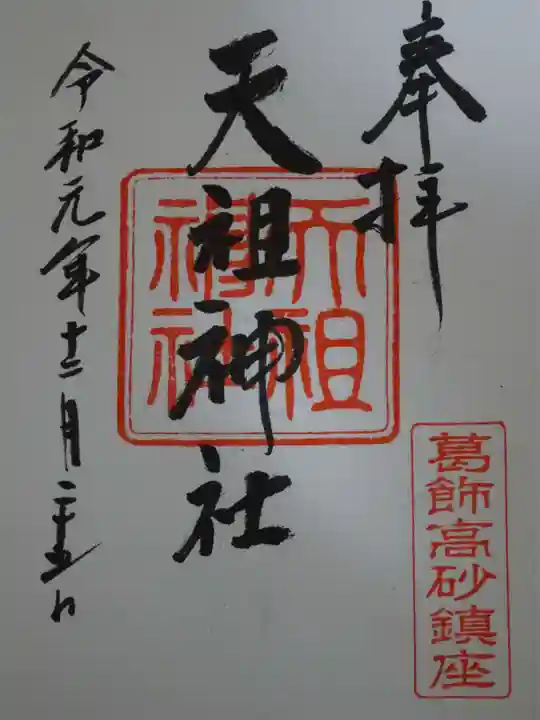 奉拝
葛飾高砂鎮座
天祖神社
天祖神社
令和元年十二月二十五日